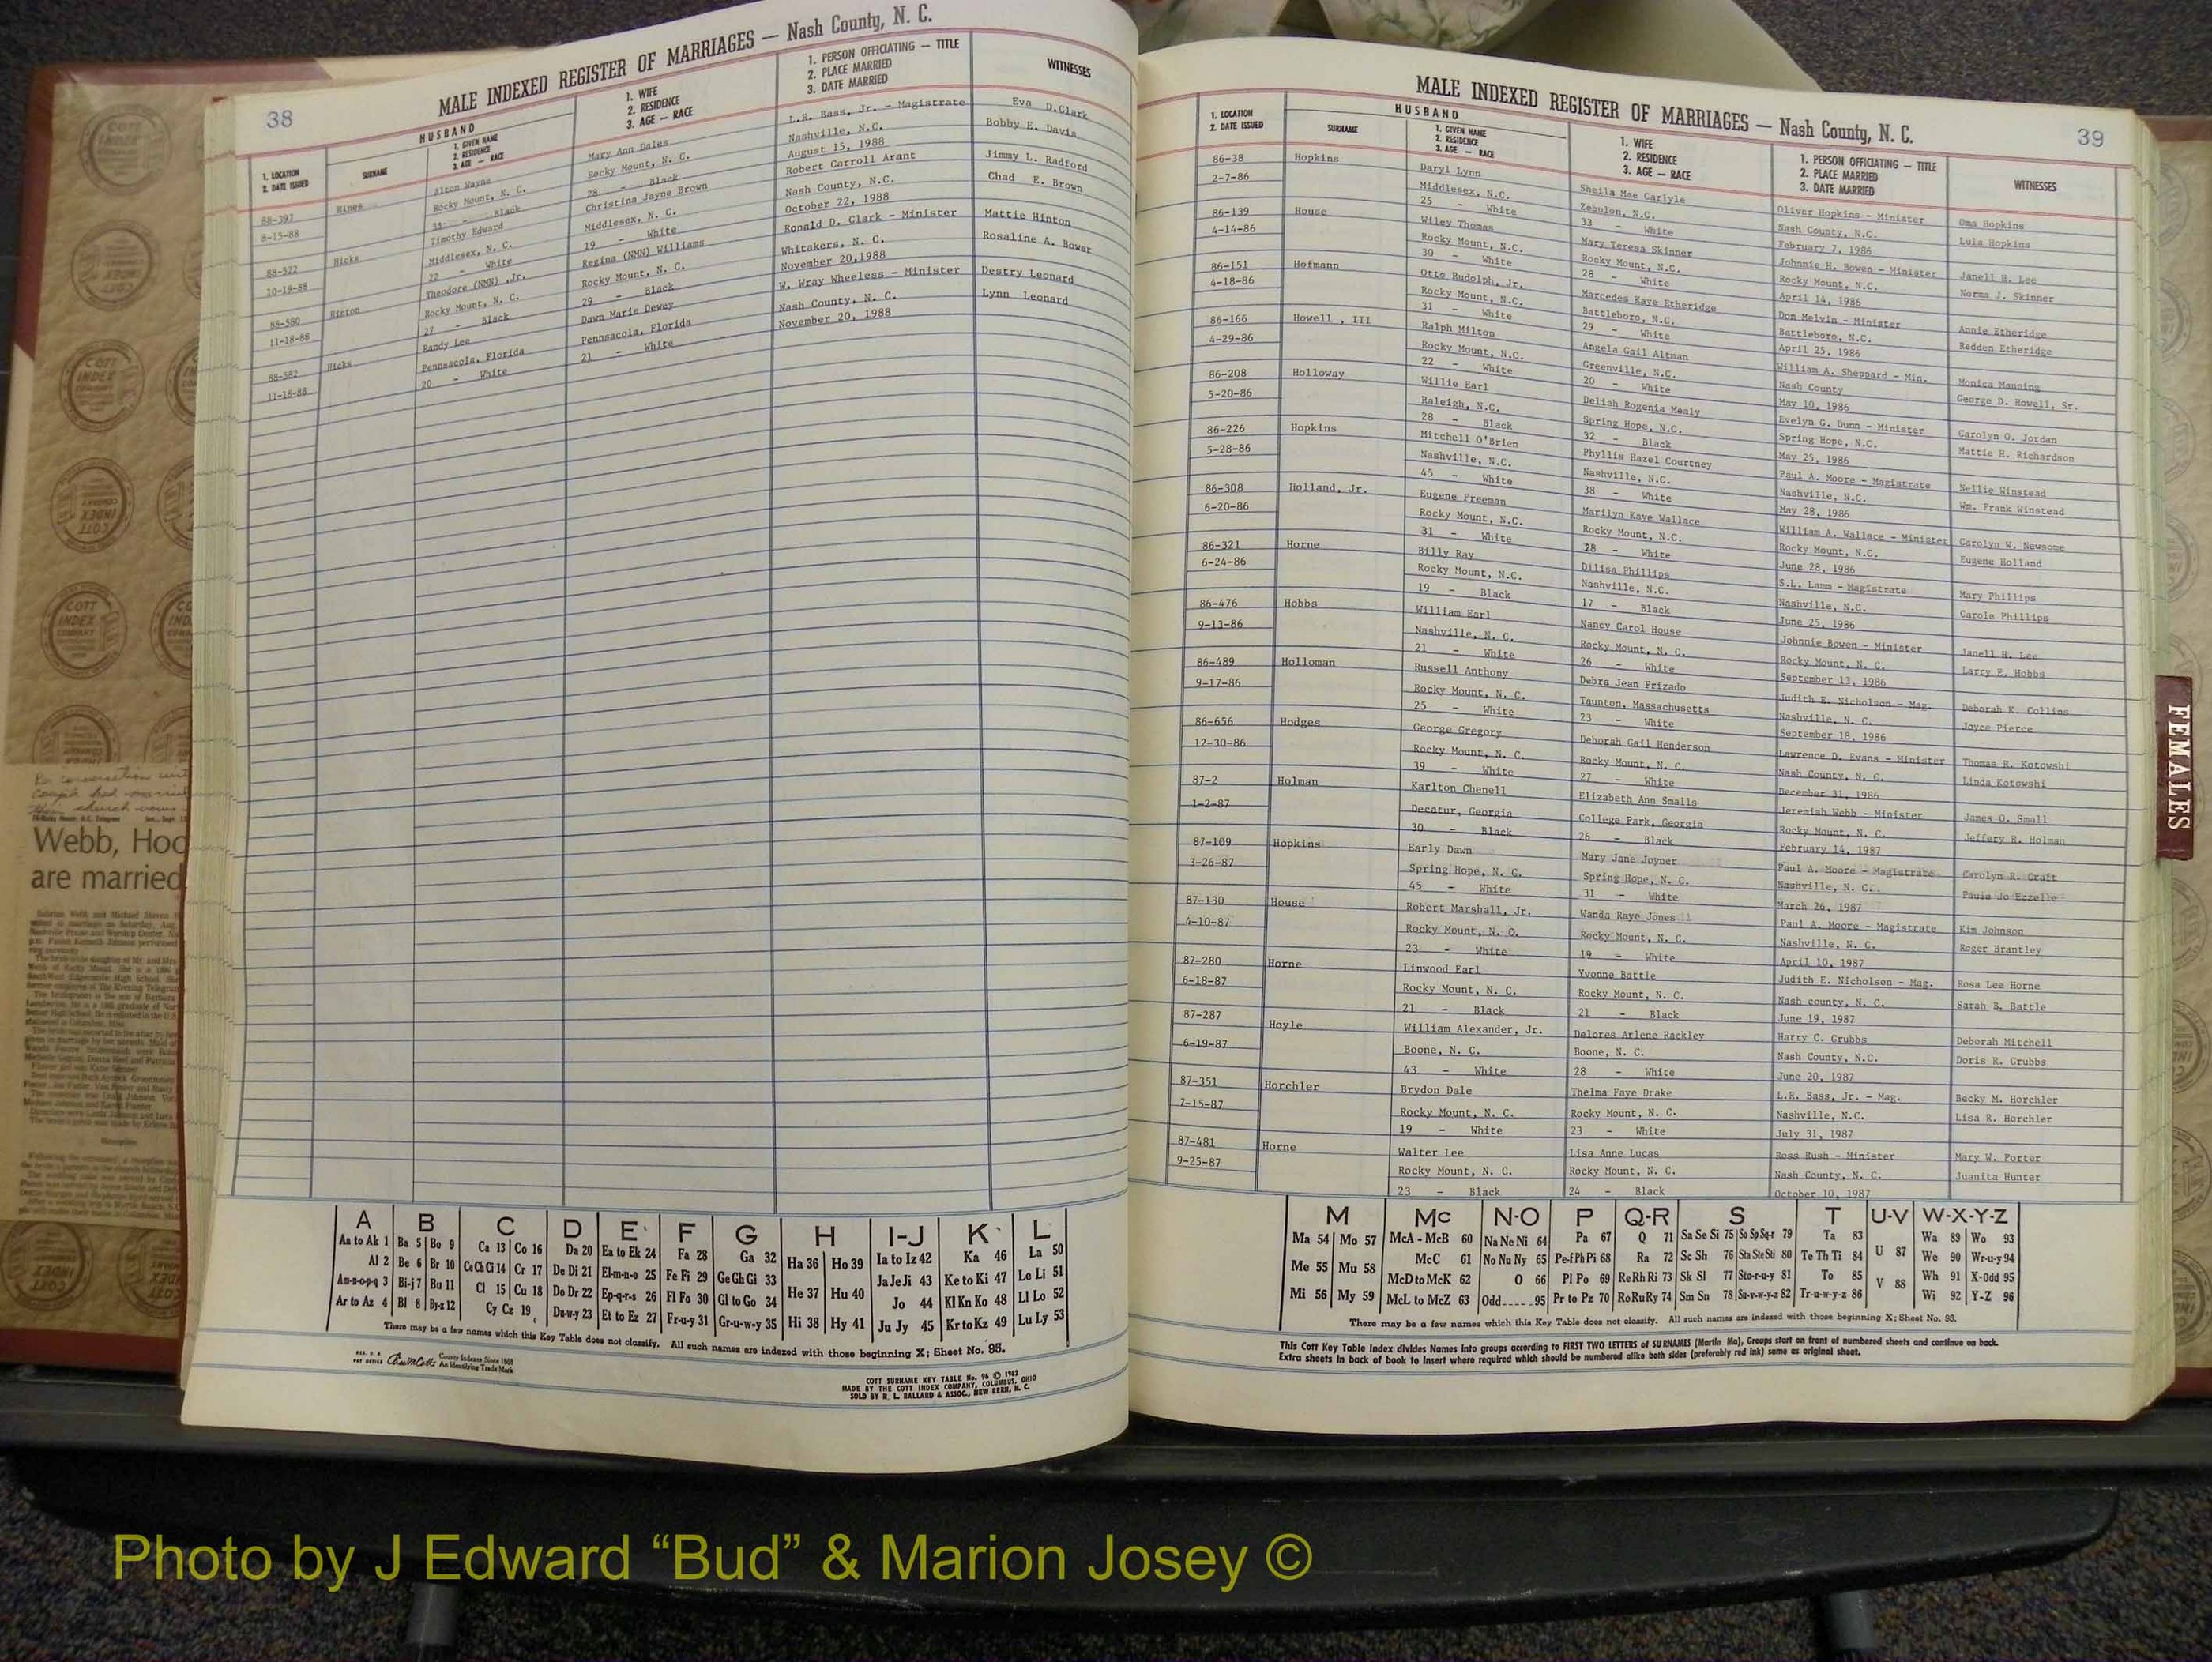 38
MALE INDEXED REGISTER OF MARRIAGES — Nash County, N. C.
1. LOCATION
2. DATE ISSUED
HUSBAND
SURNAME
1. GIVEN NAME
2. RESIDENCE
3. AGE — RACE
1. WIFE
2. RESIDENCE
3. AGE — RACE
1. PERSON OFFICIATING — TITLE
2. PLACE MARRIED
3. DATE MARRIED
WITNESSES
88-397 Hines Alton Wayne Mary Ann Dales L.R. Bass, Jr. - Magistrate Eva D.Clark
8-15-88 Rocky Mount, N. C. Rocky Mount, N. C. Nashville, N.C. Bobby E. Davis
35 - Black 28 - Black August 15, 1988
88-522 Hicks Timothy Edward Christina Jayne Brown Robert Carroll Arant Jimmy L. Radford
10-19-88 Middlesex, N. C. Middlesex, N. C. Nash County, N.C. Chad E. Brown
22 - White 19 - White October 22, 1988
88-580 Hinton Theodore (NMN) ,Jr. Regina (NMN) Williams Ronald D. Clark - Minister Mattie Hinton
11-18-88 Rocky Mount, N. C. Rocky Mount, N. C. Whitakers, N. C. Rosaline A. Bower
27 - Black 29 - Black November 20,1988
88-582 Hicks Randy Lee Dawn Marie Dewey W. Wray Wheeless - Minister Destry Leonard
11-18-88 Pennsacola, Florida Pennsacola, Florida Nash County, N. C. Lynn Leonard
20 - White 21 - White November 20, 1988
A B C D E F G H I-J K L
Aa to Ak 1 Ba 5 Bo 9 Ca 13 Co 16 Da 20 Ea to Ek 24 Fa 28 Ga 32 Ha 36 Ho 39 Ia to Iz 42 Ka 46 La 50
Al 2 Be 6 Br 10 Ce Ch Ci 14 Cr 17 De Di 21 El-m-n-o 25 Fe Fi 29 Ge Gh Gi 33 He 37 Hu 40 Ja Je Ji 43 Ke to Ki 47 Le Li 51
Am-n-o-p-q 3 Bi-j 7 Bu 11 Cl 15 Cu 18 Do Dr 22 Ep-q-r-s 26 Fl Fo 30 Gl to Go 34 Jo 44 Kl Kn Ko 48 Ll Lo 52
Ar to Az 4 Bl 8 By-z 12 Cy Cz 19 Du-w-y 23 Et to Ez 27 Fr-u-y 31 Gr-u-w-y 35 Hi 38 Hy 41 Ju Jy 45 Kr to Kz 49 Lu Ly 53
There may be a few names which this Key Table does not classify. All such names are indexed with those beginning X; Sheet No. 95.
County Indexes Since 1888
An Identifying Trade Mark
COTT SURNAME KEY TABLE No. 96 © 1962
MADE BY THE COTT INDEX COMPANY, COLUMBUS, OHIO
SOLD BY R. L. BALLARD & ASSOC., NEW BERN, N. C.
MALE INDEXED REGISTER OF MARRIAGES — Nash County, N. C.
39
1. LOCATION
2. DATE ISSUED
HUSBAND
SURNAME
1. GIVEN NAME
2. RESIDENCE
3. AGE — RACE
1. WIFE
2. RESIDENCE
3. AGE — RACE
1. PERSON OFFICIATING — TITLE
2. PLACE MARRIED
3. DATE MARRIED
WITNESSES
86-38 Hopkins Daryl Lynn Sheila Mae Carlyle Oliver Hopkins - Minister Oma Hopkins
2-7-86 Middlesex, N.C. Zebulon, N.C. Nash County, N.C. Lula Hopkins
25 - White 33 - White February 7, 1986
86-139 House Wiley Thomas Mary Teresa Skinner Johnnie H. Bowen - Minister Janell H. Lee
4-14-86 Rocky Mount, N.C. Rocky Mount, N.C. Rocky Mount, N.C. Norma J. Skinner
30 - White 28 - White April 14, 1986
86-151 Hofmann Otto Rudolph, Jr. Marcedes Kaye Etheridge Don Melvin - Minister Annie Etheridge
4-18-86 Rocky Mount, N.C. Battleboro, N.C. Battleboro, N.C. Redden Etheridge
31 - White 29 - White April 25, 1986
86-166 Howell , III Ralph Milton Angela Gail Altman William A. Sheppard - Min. Monica Manning
4-29-86 Rocky Mount, N.C. Greenville, N.C. Nash County George D. Howell, Sr.
22 - White 20 - White May 10, 1986
86-208 Holloway Willie Earl Deliah Rogenia Mealy Evelyn G. Dunn - Minister Carolyn O. Jordan
5-20-86 Raleigh, N.C. Spring Hope, N.C. Spring Hope, N.C. Mattie H. Richardson
28 - Black 32 - Black May 25, 1986
86-226 Hopkins Mitchell O'Brien Phyllis Hazel Courtney Paul A. Moore - Magistrate Nellie Winstead
5-28-86 Nashville, N.C. Nashville, N.C. Nashville, N.C. Wm. Frank Winstead
45 - White 38 - White May 28, 1986
86-308 Holland, Jr. Eugene Freeman Marilyn Kaye Wallace William A. Wallace - Minister Carolyn W. Newsome
6-20-86 Rocky Mount, N.C. Rocky Mount, N.C. Rocky Mount, N.C. Eugene Holland
31 - White 28 - White June 28, 1986
86-321 Horne Billy Ray Dilisa Phillips S.L. Lamm - Magistrate Mary Phillips
6-24-86 Rocky Mount, N.C. Nashville, N.C. Nashville, N.C. Carole Phillips
19 - Black 17 - Black June 25, 1986
86-476 Hobbs William Earl Nancy Carol House Johnnie Bowen - Minister Janell H. Lee
9-11-86 Nashville, N. C. Rocky Mount, N. C. Rocky Mount, N. C. Larry E. Hobbs
21 - White 26 - White September 13, 1986
86-489 Holloman Russell Anthony Debra Jean Frizado Judith E. Nicholson - Mag. Deborah K. Collins
9-17-86 Rocky Mount, N. C. Taunton, Massachusetts Nashville, N. C. Joyce Pierce
25 - White 23 - White September 18, 1986
86-656 Hodges George Gregory Deborah Gail Henderson Lawrence D. Evans - Minister Thomas R. Kotowski
12-30-86 Rocky Mount, N. C. Rocky Mount, N. C. Nash County, N. C. Linda Kotowski
39 - White 27 - White December 31, 1986
87-2 Holman Karlton Chenell Elizabeth Ann Smalls Jeremiah Webb - Minister James O. Small
1-2-87 Decatur, Georgia College Park, Georgia Rocky Mount, N. C. Jeffery R. Holman
30 - Black 26 - Black February 14, 1987
87-109 Hopkins Early Dawn Mary Jane Joyner Paul A. Moore - Magistrate Carolyn R. Craft
3-26-87 Spring Hope, N. C. Spring Hope, N. C. Nashville, N. C. Paula Jo Ezzelle
45 - White 31 - White March 26, 1987
87-130 House Robert Marshall, Jr. Wanda Raye Jones Paul A. Moore - Magistrate Kim Johnson
4-10-87 Rocky Mount, N. C. Rocky Mount, N. C. Nashville, N. C. Roger Brantley
23 - White 19 - White April 10, 1987
87-280 Horne Linwood Earl Yvonne Battle Judith E. Nicholson - Mag. Rosa Lee Horne
6-18-87 Rocky Mount, N. C. Rocky Mount, N. C. Nash county, N. C. Sarah B. Battle
21 - Black 21 - Black June 19, 1987
87-287 Hoyle William Alexander, Jr. Delores Arlene Rackley Harry C. Grubbs Deborah Mitchell
6-19-87 Boone, N. C. Boone, N. C. Nash County, N.C. Doris R. Grubbs
43 - White 28 - White June 20, 1987
87-351 Horchler Brydon Dale Thelma Faye Drake L.R. Bass, Jr. - Mag. Becky M. Horchler
7-15-87 Rocky Mount, N. C. Rocky Mount, N. C. Nashville, N.C. Lisa R. Horchler
19 - White 23 - White July 31, 1987
87-481 Horne Walter Lee Lisa Anne Lucas Ross Rush - Minister Mary W. Porter
9-25-87 Rocky Mount, N. C. Rocky Mount, N. C. Nash County, N. C. Juanita Hunter
23 - Black 24 - Black October 10, 1987
M Mc N-O P Q-R S T U-V W-X-Y-Z
Ma 54 Mo 57 McA - McB 60 Na Ne Ni 64 Pa 67 Q 71 Sa Se Si 75 So Sp Sq-r 79 Ta 83 Wa 89 Wo 93
Me 55 Mu 58 McC 61 No Nu Ny 65 Pe-f Ph Pi 68 Ra 72 Sc Sh 76 Sta Ste Sti 80 Te Th Ti 84 U 87 We 90 Wr-u-y 94
McD to McK 62 O 66 Pl Po 69 Re Rh Ri 73 Sk Sl 77 Sto-r-u-y 81 To 85 Wh 91 X-Odd 95
Mi 56 My 59 McL to McZ 63 Odd 95 Pr to Pz 70 Ro Ru Ry 74 Sm Sn 78 Su-v-w-y-z 82 Tr-u-w-y-z 86 V 88 Wi 92 Y-Z 96
There may be a few names which this Key Table does not classify. All such names are indexed with those beginning X; Sheet No. 95.
This Cott Key Table Index divides Names into groups according to FIRST TWO LETTERS of SURNAMES (Martin Ma). Groups start on front of numbered sheets and continue on back.
Extra sheets in back of book to insert where required which should be numbered alike both sides (preferably red ink) same as original sheet.
FEMALES
Webb, Hoo
are married
COTT
INDEX
COMPANY
Photo by J Edward “Bud” & Marion Josey ©